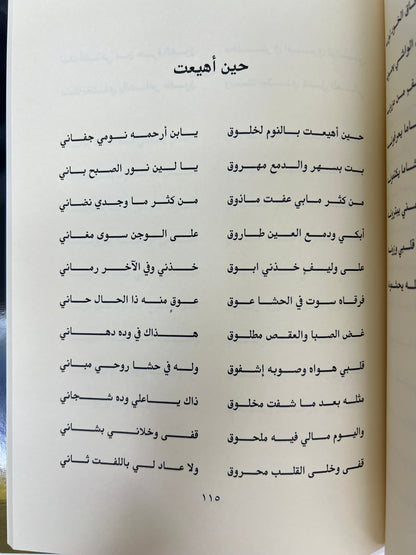 حين أهيعت
حين أهيعت بالنوم لخلوق يابن أرحمه نومي جفاني
بت بسهر والدمع مهروق يا لين نور الصبح باني
من كثر مابي عفت ماذوق من كثر ما وجدي نضاني
أبكي ودمع العين طاروق على الوجن سوى مغاني
على وليفٍ خذني ابوق خذني وفي الآخر رماني
فرقاه سوت في الحشا عوق عوقٍ منه ذا الحال حاني
غض الصبا والعقص مطلوق هذاك في وده دهاني
قلبي هواه وصوبه إشفوق وله في حشا روحي مباني
مثله بعد ما شفت مخلوق ذاك ياعلي وده شجاني
واليوم مالي فيه ملحوق قفى وخلاني بشاني
قفى وخلى القلب محروق ولا عاد لي باللفت ثاني
١١٥